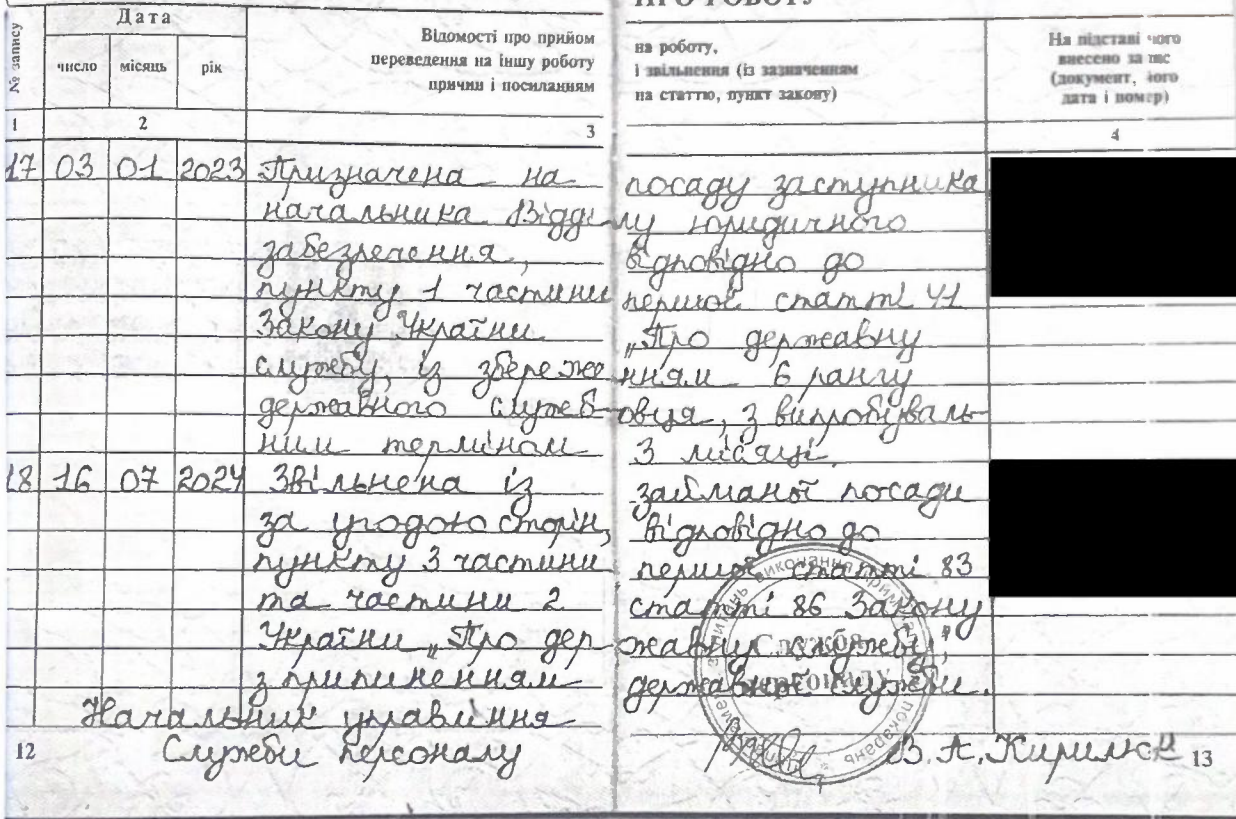 ПРО РОБОТУ
№ запису
Дата
число місяць рік
Відомості про прийом
переведення на іншу роботу
причин і посиланням
на роботу,
і звільнення (із зазначенням
на статтю, пункт закону)
На підставі чого
внесено запис
(документ, його
дата і номер)
1 2 3 4
17 03 01 2023 Призначена на посаду заступника
начальника Відділу юридичного
забезпечення, відповідно до
пункту 1 частини першої статті 41
Закону України „Про державну
службу, із збереженням 6 рангу
державного службовця, з випробуваль-
ним терміном 3 місяці.
18 16 07 2024 Звільнена із займаної посади
за угодою сторін, відповідно до
пункту 3 частини першої статті 83
та частини 2 статті 86 Закону
України „Про державну службу",
з припиненням державної служби.
Начальник управління
Служби персоналу В. А. Кирилюк
Служба
персоналу
12 13